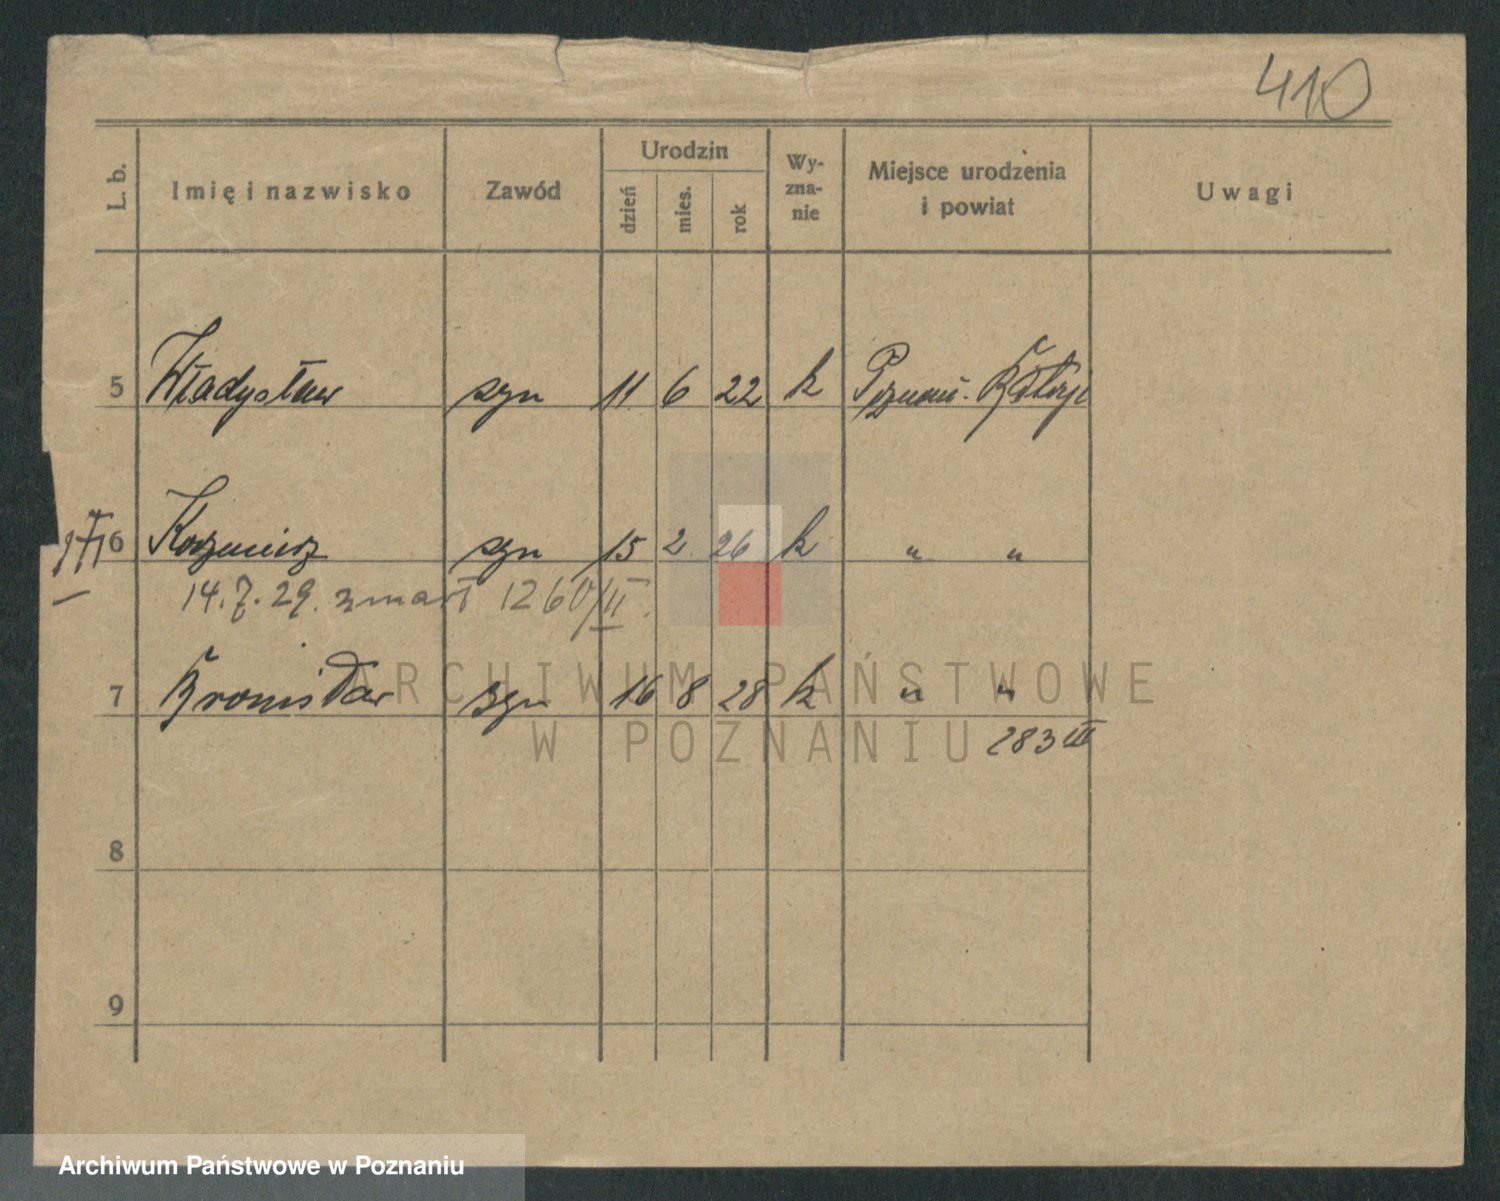 410
L. b. Imię i nazwisko Zawód Urodzin dzień mies. rok Wy-zna-nie Miejsce urodzenia i powiat Uwagi
5 Władysław syn 11 6 22 k Poznań
6 Kazimierz syn 15 2 26 k " "
14.7.29. zmarł 1260/II.
7 Bronisław syn 16 8 28 k " "
283 III
8
9
ARCHIWUM PAŃSTWOWE
W POZNANIU
Archiwum Państwowe w Poznaniu